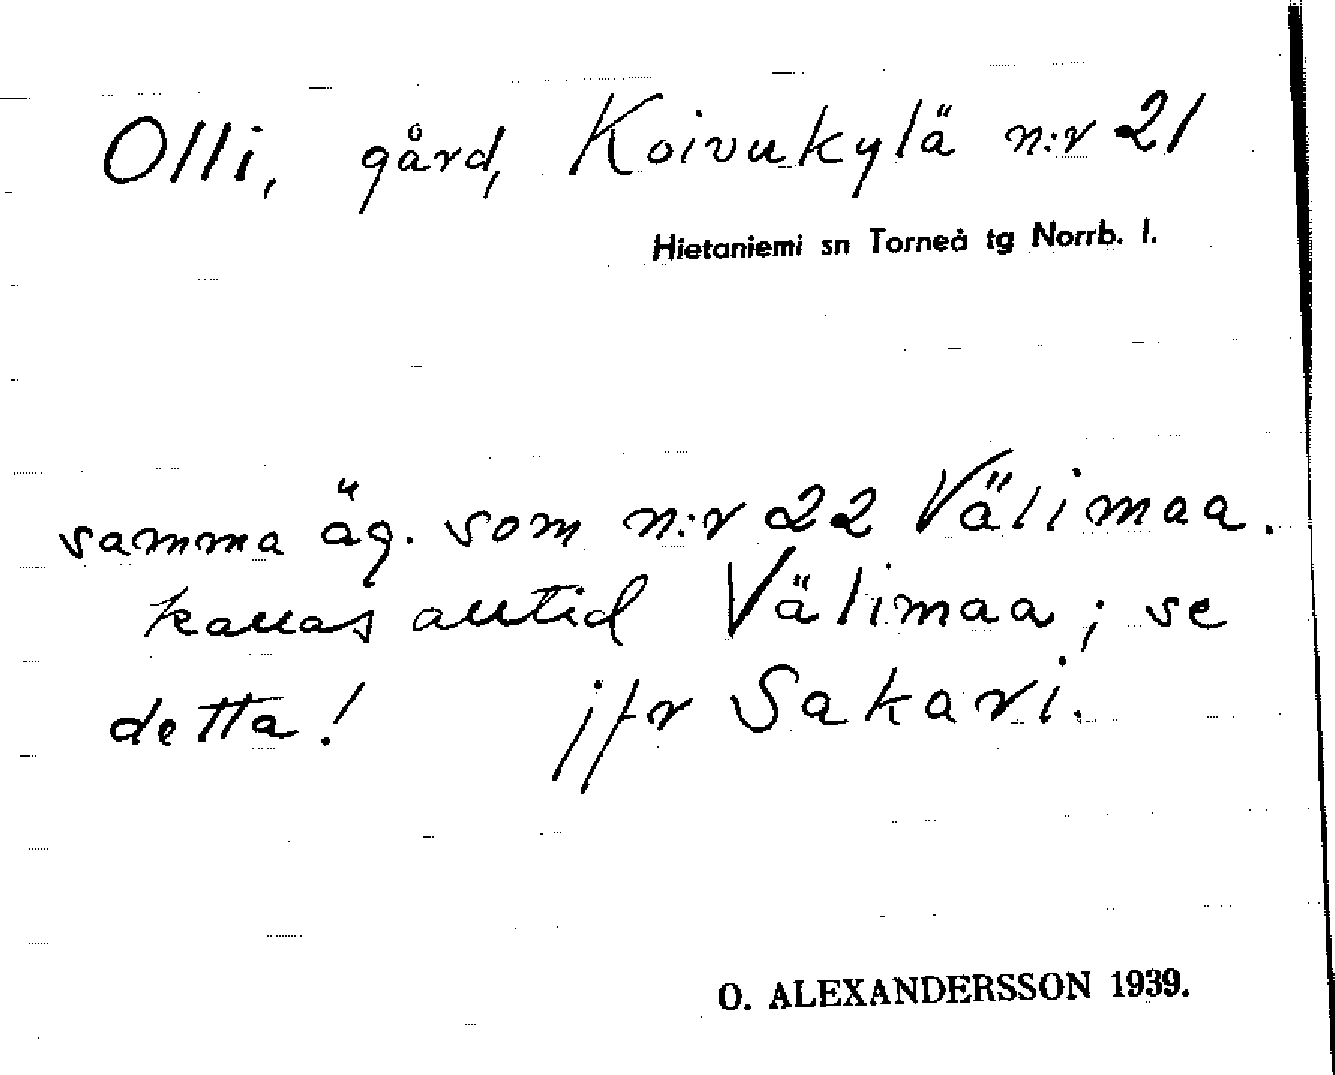 Olli, gård, Koivukylä n:r 21
Hietaniemi sn Torneå tg Norrb. l.
samma äg. som n:r 22 Välimaa.
kallas alltid Välimaa; se
detta! jfr Sakari.
O. ALEXANDERSSON 1939.